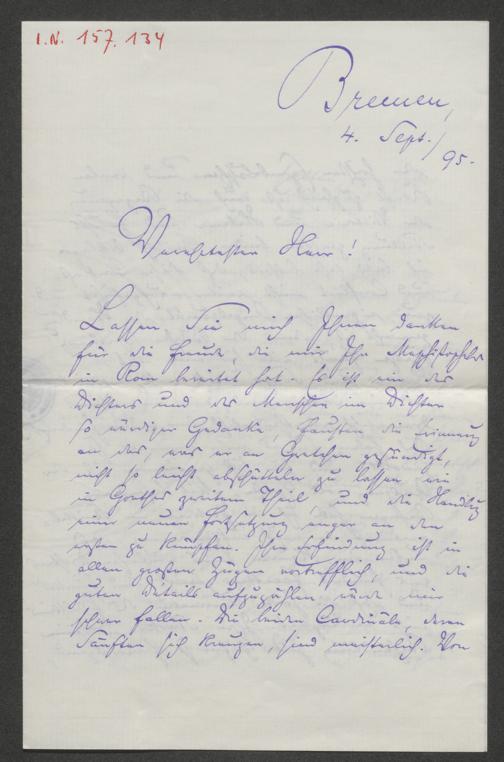 I.N. 157.134
Bremen,
4. Sept./
95.
Verehrtester Herr!
Lassen Sie mich Ihnen danken
für die Freude, die mir Ihr Mephistopheles
in Rom bereitet hat. Es ist ein des
Dichters und des Menschen im Dichter
so würdiger Gedanke, Fausten die Erinnerung
an das, was er an Gretchen gesündigt,
nicht so leicht abschütteln zu lassen wie
in Goethes zweitem Theil, und die Handlung
einer neuen Fortsetzung enger an den
ersten zu knüpfen. Ihre Erfindung ist in
allen großen Zügen vortrefflich, und die
guten Details aufzuzählen würde mir
schwer fallen. Die beiden Cardinäle, deren
Sänften sich kreuzen, sind meisterlich. Von